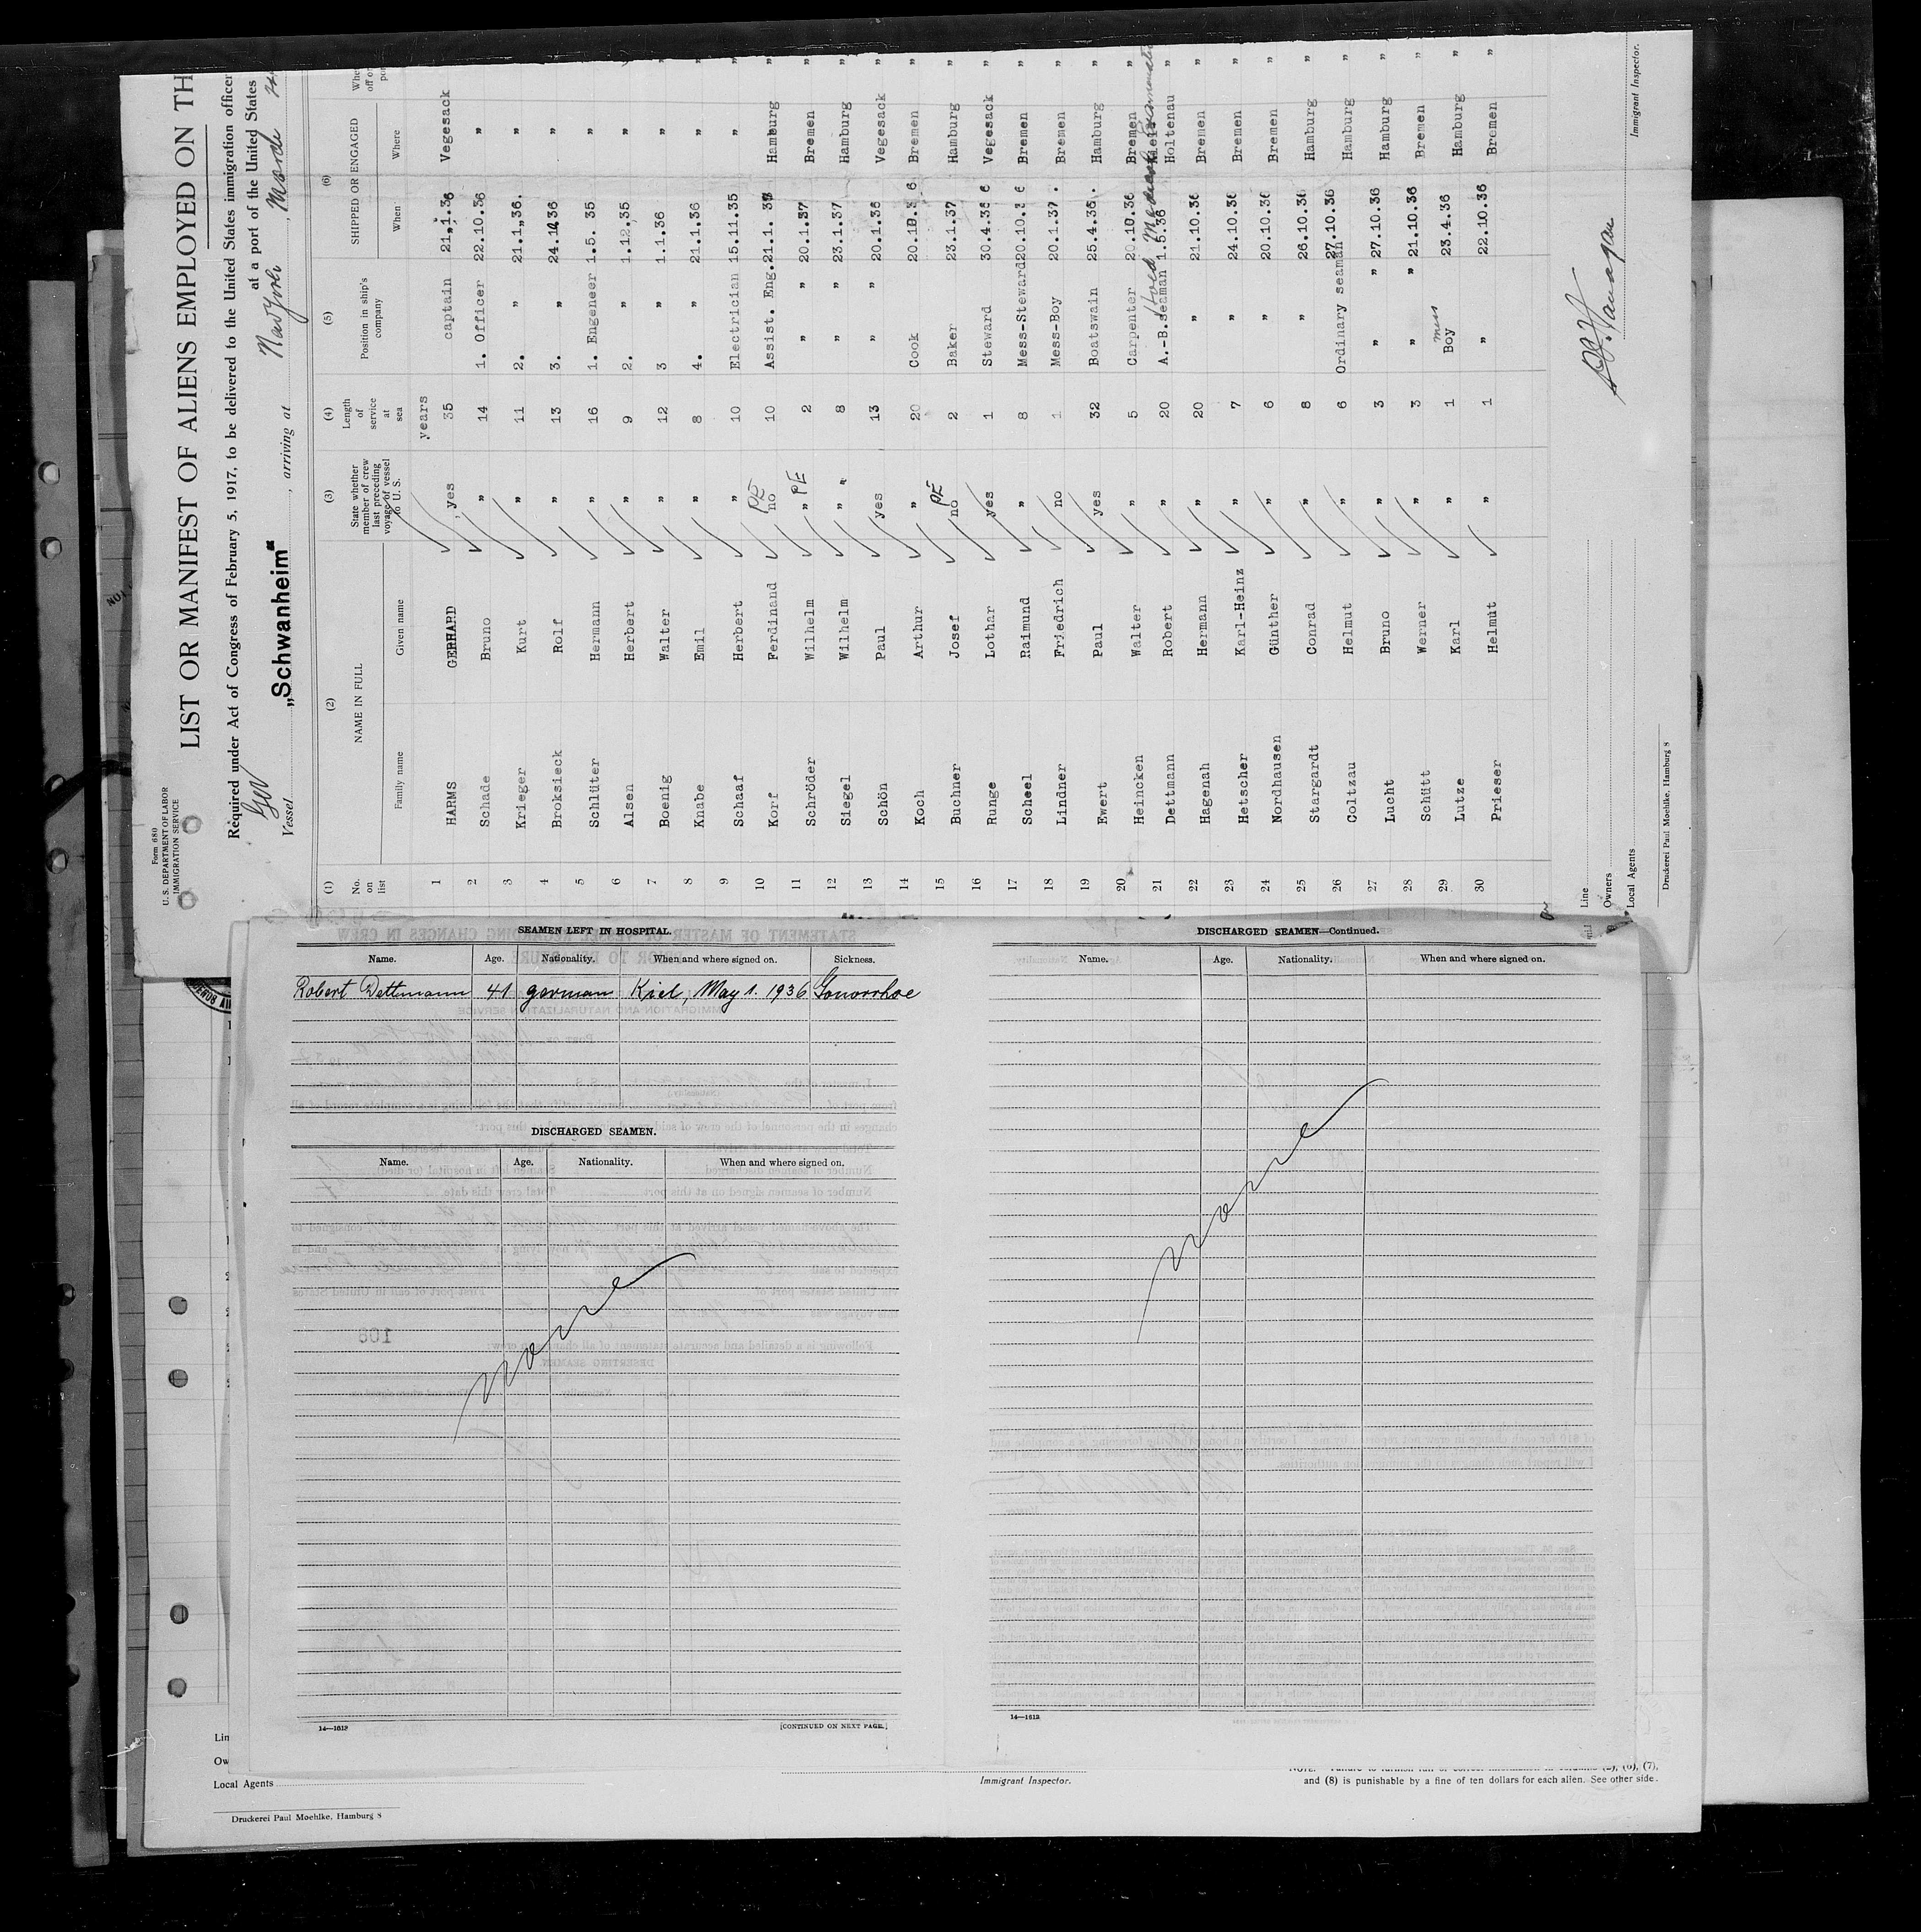 Form 680
U. S. DEPARTMENT OF LABOR
IMMIGRATION SERVICE
LIST OR MANIFEST OF ALIENS EMPLOYED ON TH
Required under Act of Congress of February 5, 1917, to be delivered to the United States immigration officer
at a port of the United States
Ger
Vessel „Schwanheim“, arriving at New York,
(1) (2) (3) (4) (5) (6)
No. on list
NAME IN FULL
Family name Given name
State whether member of crew last preceding voyage of vessel to U. S.
Length of service at sea
Position in ship's company
SHIPPED OR ENGAGED
When Where
years
1 HARMS GERHARD yes 35 captain 21.1.36 Vegesack
2 Schade Bruno " 14 1. Officer 22.10.36 "
3 Krieger Kurt " 11 2. " 21.1.36. "
4 Broksieck Rolf " 13 3. " "
5 Schlüter Hermann " 16 1. Engeneer 1.5. 35 "
6 Alsen Herbert " 9 2. " 1.12.35 "
7 Boenig Walter " 12 3 " 1.1.36 "
8 Knabe Emil " 8 4. " 21.1.36 "
9 Schaaf Herbert " 10 Electrician 15.11.35 "
10 Korf Ferdinand PE no 10 Assist. Eng. 21.1. 37 Hamburg "
11 Schröder Wilhelm " PE 2 " " 20.1.37 Bremen "
12 Siegel Wilhelm " 8 " " 23.1.37 Hamburg "
13 Schön Paul yes 13 " " 20.1.36 Vegesack "
14 Koch Arthur " 20 Cook 20.10.36 Bremen "
15 Buchner Josef PE no 2 Baker 23.1.37 Hamburg "
16 Runge Lothar yes 1 Steward 30.4.36 Vegesack "
17 Scheel Raimund " 8 Mess-Steward 20.10.36 Bremen "
18 Lindner Friedrich no 1 Mess-Boy 20.1.37. Bremen "
19 Ewert Paul yes 32 Boatswain 25.4.36. Hamburg "
20 Heincken Walter " 5 Carpenter 20.10.36 Bremen "
21 Dettmann Robert " 20 A.-B.seaman 1.5.36 Holtenau "
22 Hagenah Hermann " 20 " 21.10.36 Bremen "
23 Hetscher Karl-Heinz " 7 " 24.10.36 Bremen "
24 Nordhausen Günther " 6 " 20.10.36 Bremen "
25 Stargardt Conrad " 8 " 26.10.36 Hamburg "
26 Coltzau Helmut " 6 Ordinary seaman 27.10.36 Hamburg "
27 Lucht Bruno " 3 " " 27.10.36 Hamburg "
28 Schütt Werner " 3 " " 21.10.36 Bremen "
29 Lutze Karl " 1 mess Boy 23.4.36 Hamburg "
30 Prieser Helmut " 1 " 22.10.36 Bremen "
Line
Owners
Local Agents
Immigrant Inspector.
Druckerei Paul Moehlke, Hamburg 8
SEAMEN LEFT IN HOSPITAL.
Name. Age. Nationality. When and where signed on. Sickness.
Robert Dettmann 41 german Kiel, May 1. 1936 Gonorrhoe
DISCHARGED SEAMEN.
Name. Age. Nationality. When and where signed on.
none
14—1612
[CONTINUED ON NEXT PAGE.]
DISCHARGED SEAMEN—Continued.
Name. Age. Nationality. When and where signed on.
none
14—1612
Lin
Ow
Local Agents
Immigrant Inspector.
and (8) is punishable by a fine of ten dollars for each alien. See other side.
Druckerei Paul Moehlke, Hamburg 8